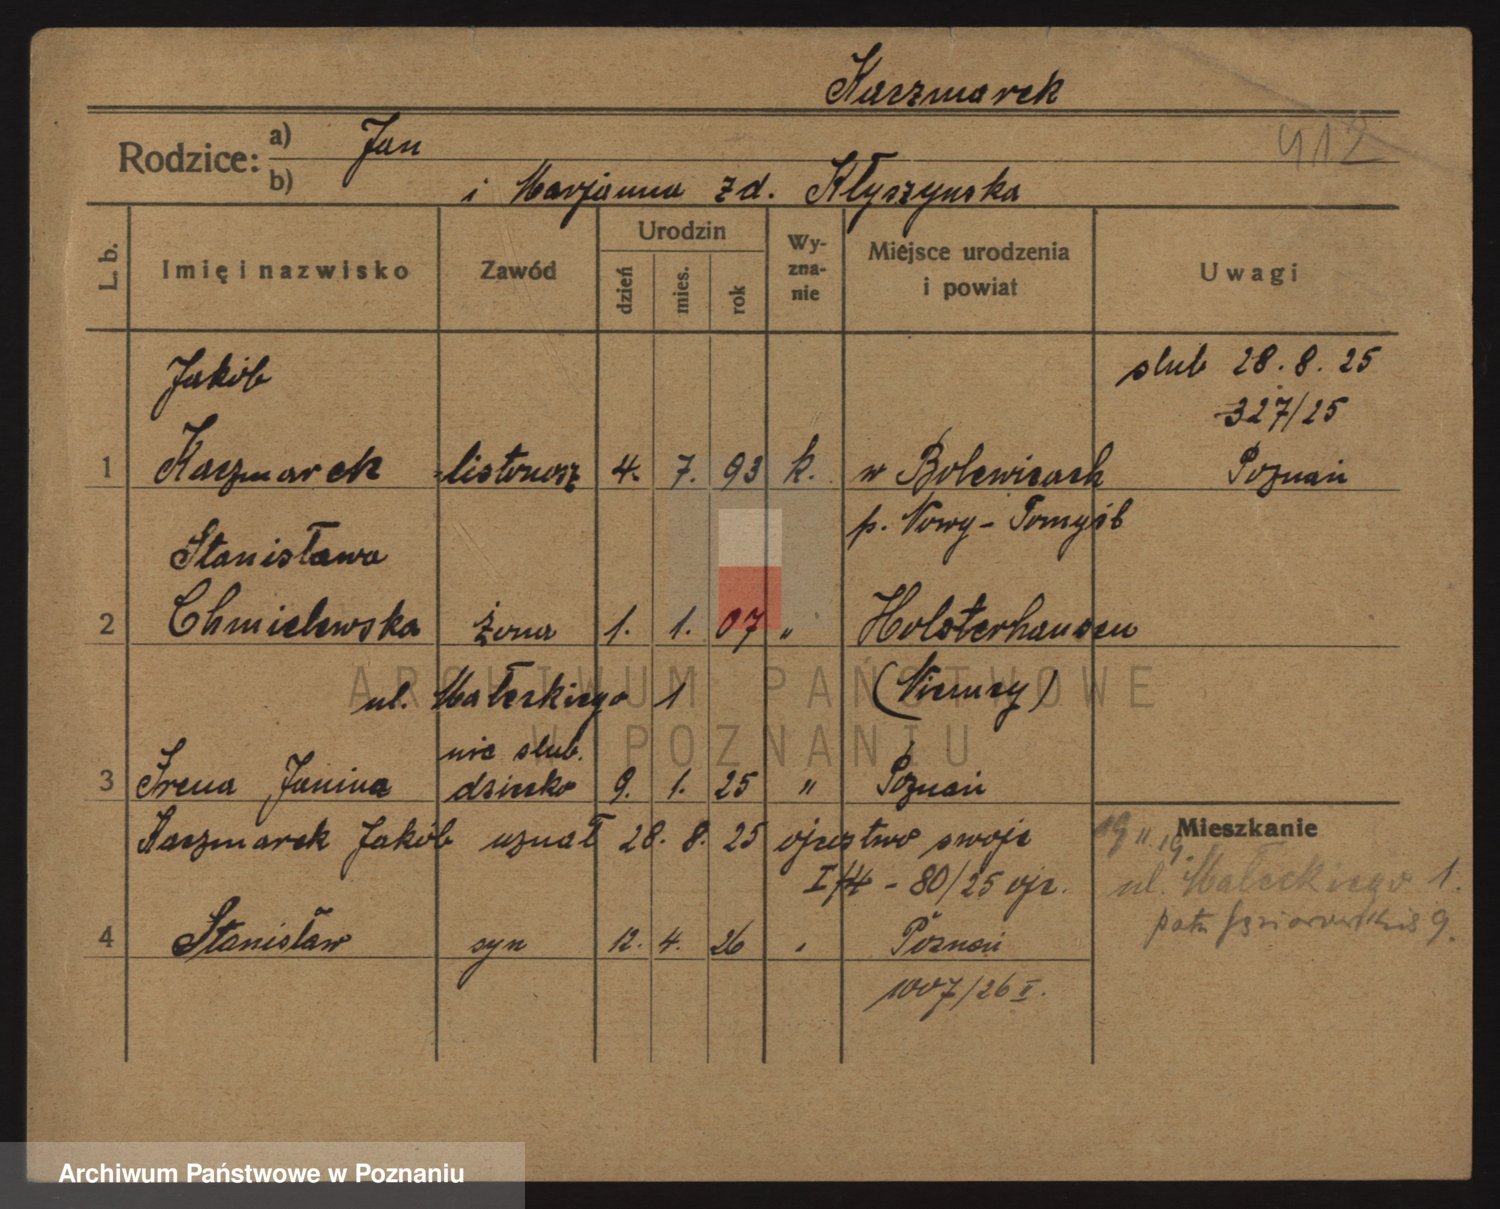 Kaczmarek
412
Rodzice: a) Jan
b) i Marjanna zd. Kłyszyńska
L. b.
Imię i nazwisko
Zawód
Urodzin
dzień
mies.
rok
Wy-
zna-
nie
Miejsce urodzenia
i powiat
Uwagi
Jakób
slub 28. 8. 25
327/25
1 Kaczmarek listonosz 4. 7. 93 k. w Bolewicach Poznań
p. Nowy-Tomyśl
Stanisława
2 Chmielewska żona 1. 1. 07 " Holsterhausen
ul. Małeckiego 1 (Niemcy)
nie slub.
3 Irena Janina dziecko 9. 1. 25 " Poznań
Kaczmarek Jakób uznał 28. 8. 25 ojcostwo swoje
I/4 - 80/25 ojc.
Mieszkanie
ul. Małeckiego 1.
4 Stanisław syn 12. 4. 26 " Poznań
1007/26 I.
ARCHIWUM PAŃSTWOWE
W POZNANIU
Archiwum Państwowe w Poznaniu